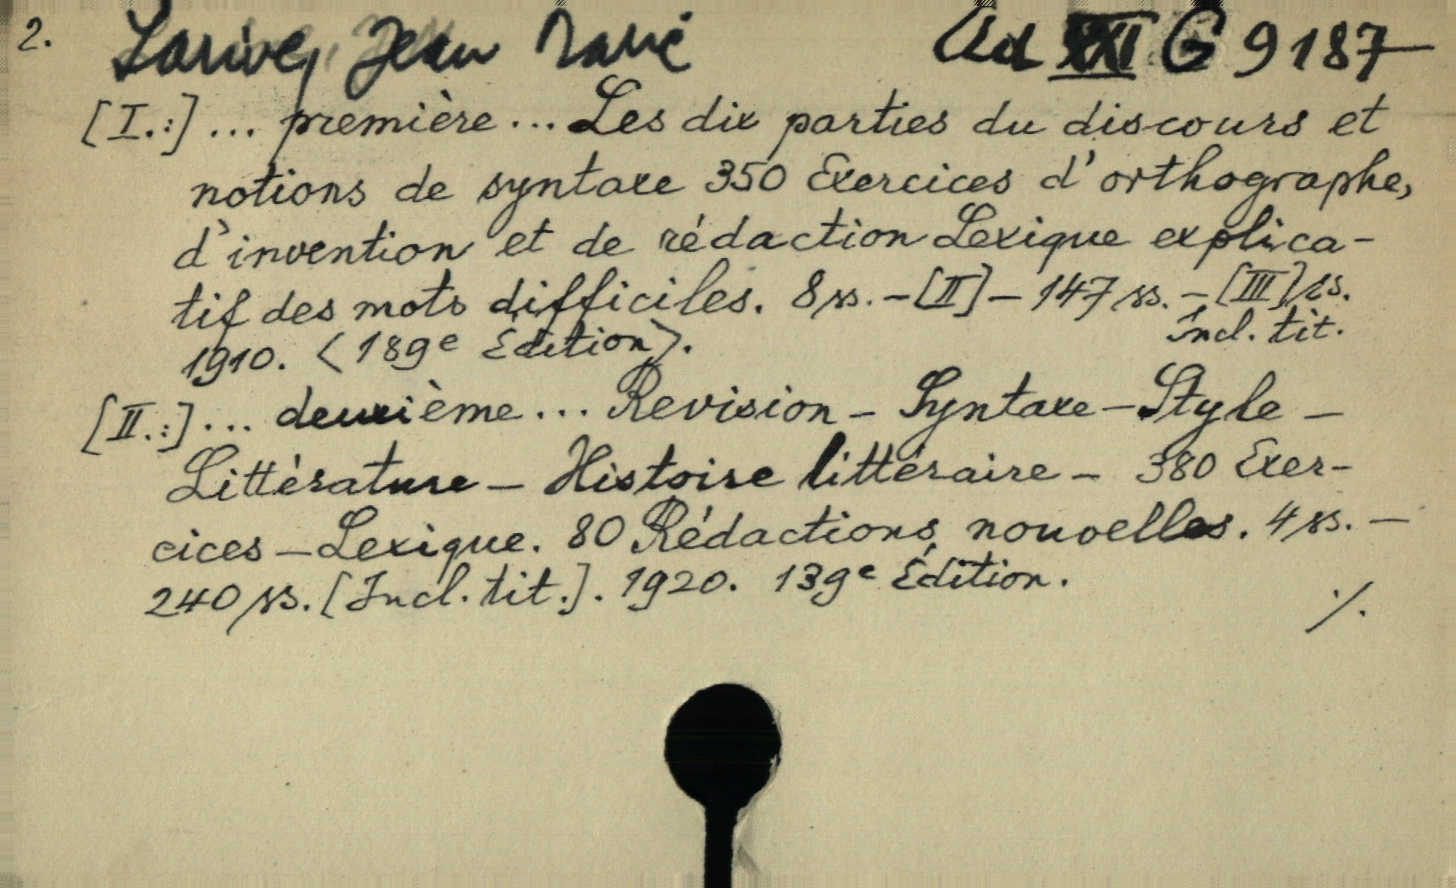 2. Larive, Jean Marie Ad XXI G 9187
[I.:] ... première ... Les dix parties du discours et
notions de syntaxe 350 Exercices d'orthographe,
d'invention et de rédaction Lexique explica-
tif des mots difficiles. 8 ss. - [II] - 147 ss. - [III] ss.
Incl. tit.
1910. <189e Édition>.
[II.:] ... deuxième ... Revision - Syntaxe - Style -
Littérature - Histoire littéraire - 380 Exer-
cices - Lexique. 80 Rédactions nouvelles. 4 ss. -
240 ss. [Incl. tit.]. 1920. 139e Édition.
./.